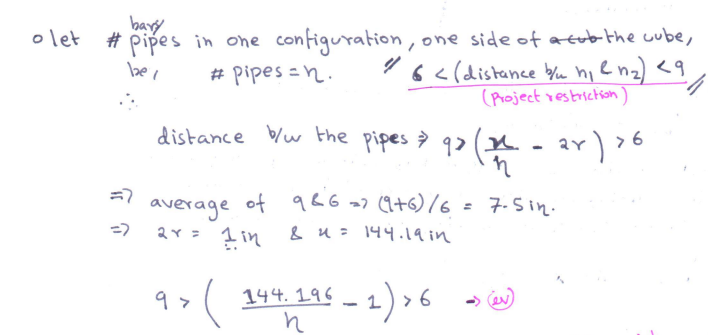 o let # pipes bars in one configuration, one side of a cub the cube,
be, # pipes = n. // 6 < (distance b/w n₁ & n₂) < 9 //
(Project restriction)
∴
distance b/w the pipes ⇒ 9 > (x/n - 2r) > 6
=> average of 9 & 6 => (9+6)/6 = 7.5 in.
=> 2r = 1 in & x = 144.19 in
9 > (144.196/n - 1) > 6 →